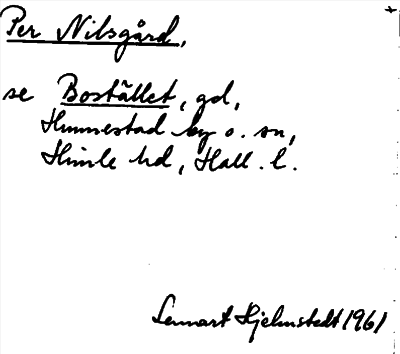 Per Nilsgård,
se Bostället, gd,
Hunnestad by o. sn,
Himle hd, Hall. l.
Lennart Hjelmstedt 1961